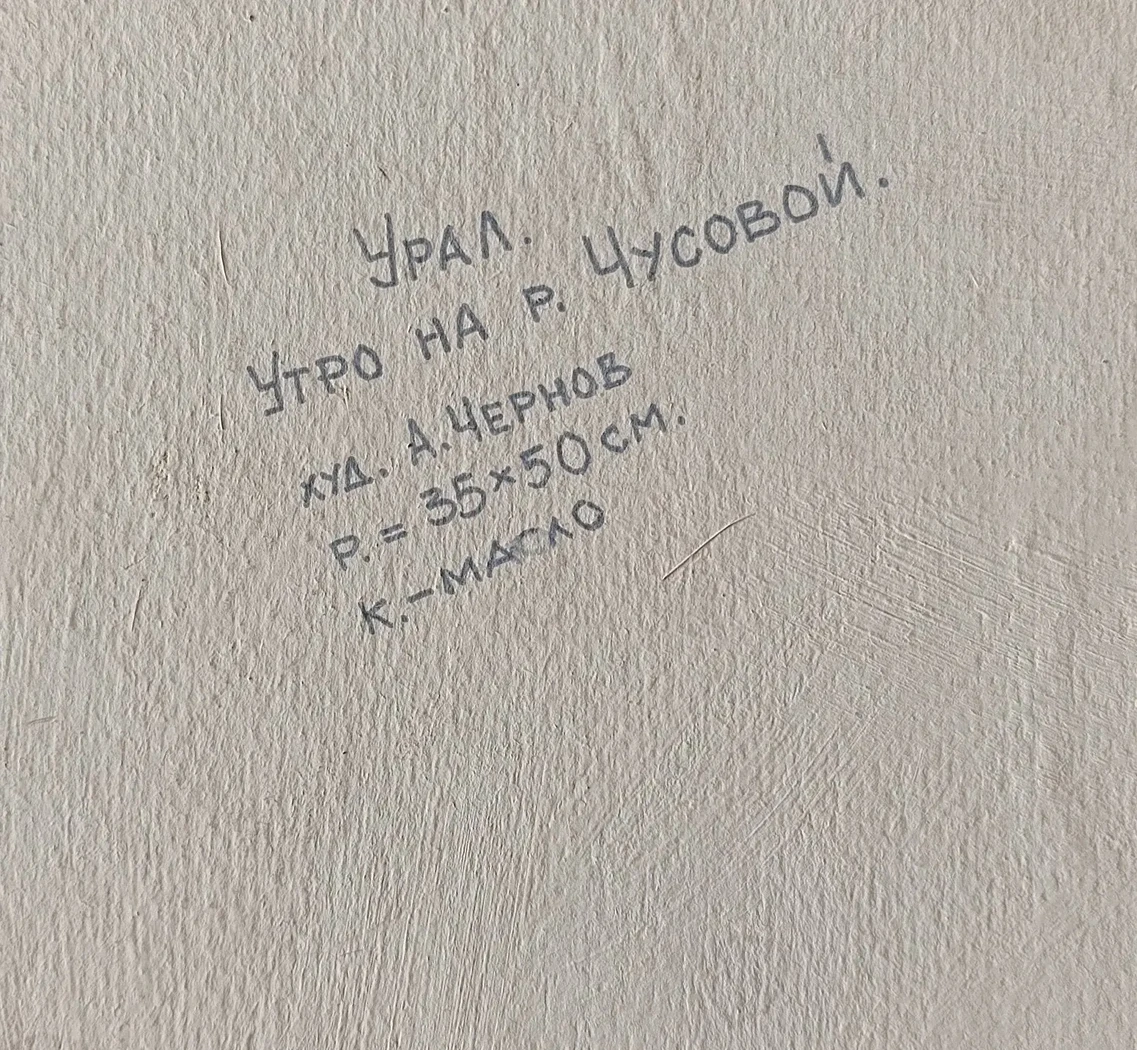 Урал.
Утро на р. Чусовой.
худ. А. Чернов
р. = 35×50 см.
к.-масло